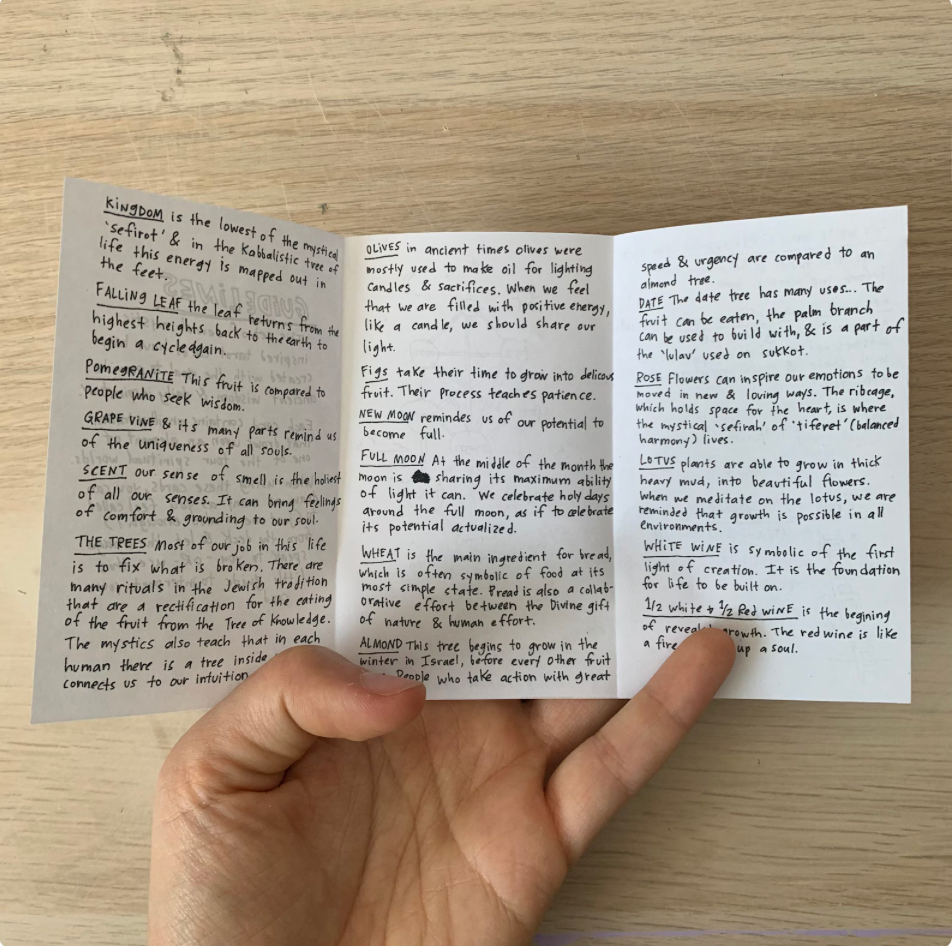 KINGDOM is the lowest of the mystical
'sefirot' & in the Kabbalistic tree of
life this energy is mapped out in
the feet.
FALLING LEAF the leaf returns from the
highest heights back to the earth to
begin a cycle again.
POMEGRANITE This fruit is compared to
people who seek wisdom.
GRAPE VINE & it's many parts remind us
of the uniqueness of all souls.
SCENT our sense of smell is the holiest
of all our senses. It can bring feelings
of comfort & grounding to our soul.
THE TREES Most of our job in this life
is to fix what is broken. There are
many rituals in the Jewish tradition
that are a rectification for the eating
of the fruit from the Tree of Knowledge.
The mystics also teach that in each
human there is a tree inside
connects us to our intuition
OLIVES in ancient times olives were
mostly used to make oil for lighting
candles & sacrifices. When we feel
that we are filled with positive energy,
like a candle, we should share our
light.
Figs take their time to grow into delicous
fruit. Their process teaches patience.
NEW MOON remindes us of our potential to
become full.
FULL MOON At the middle of the month the
moon is sharing its maximum ability
of light it can. We celebrate holy days
around the full moon, as if to celebrate
its potential actualized.
WHEAT is the main ingredient for bread,
which is often symbolic of food at its
most simple state. Bread is also a collab-
orative effort between the Divine gift
of nature & human effort.
ALMOND This tree begins to grow in the
winter in Israel, before every other fruit
People who take action with great
speed & urgency are compared to an
almond tree.
DATE The date tree has many uses... The
fruit can be eaten, the palm branch
can be used to build with, & is a part of
the 'lulav' used on sukkot.
ROSE Flowers can inspire our emotions to be
moved in new & loving ways. The ribcage,
which holds space for the heart, is where
the mystical 'sefirah' of 'tiferet' (balanced
harmony) lives.
LOTUS plants are able to grow in thick
heavy mud, into beautiful flowers.
When we meditate on the lotus, we are
reminded that growth is possible in all
environments.
WHITE WINE is symbolic of the first
light of creation. It is the foundation
for life to be built on.
1/2 white & 1/2 Red WINE is the begining
of growth. The red wine is like
a fire up a soul.